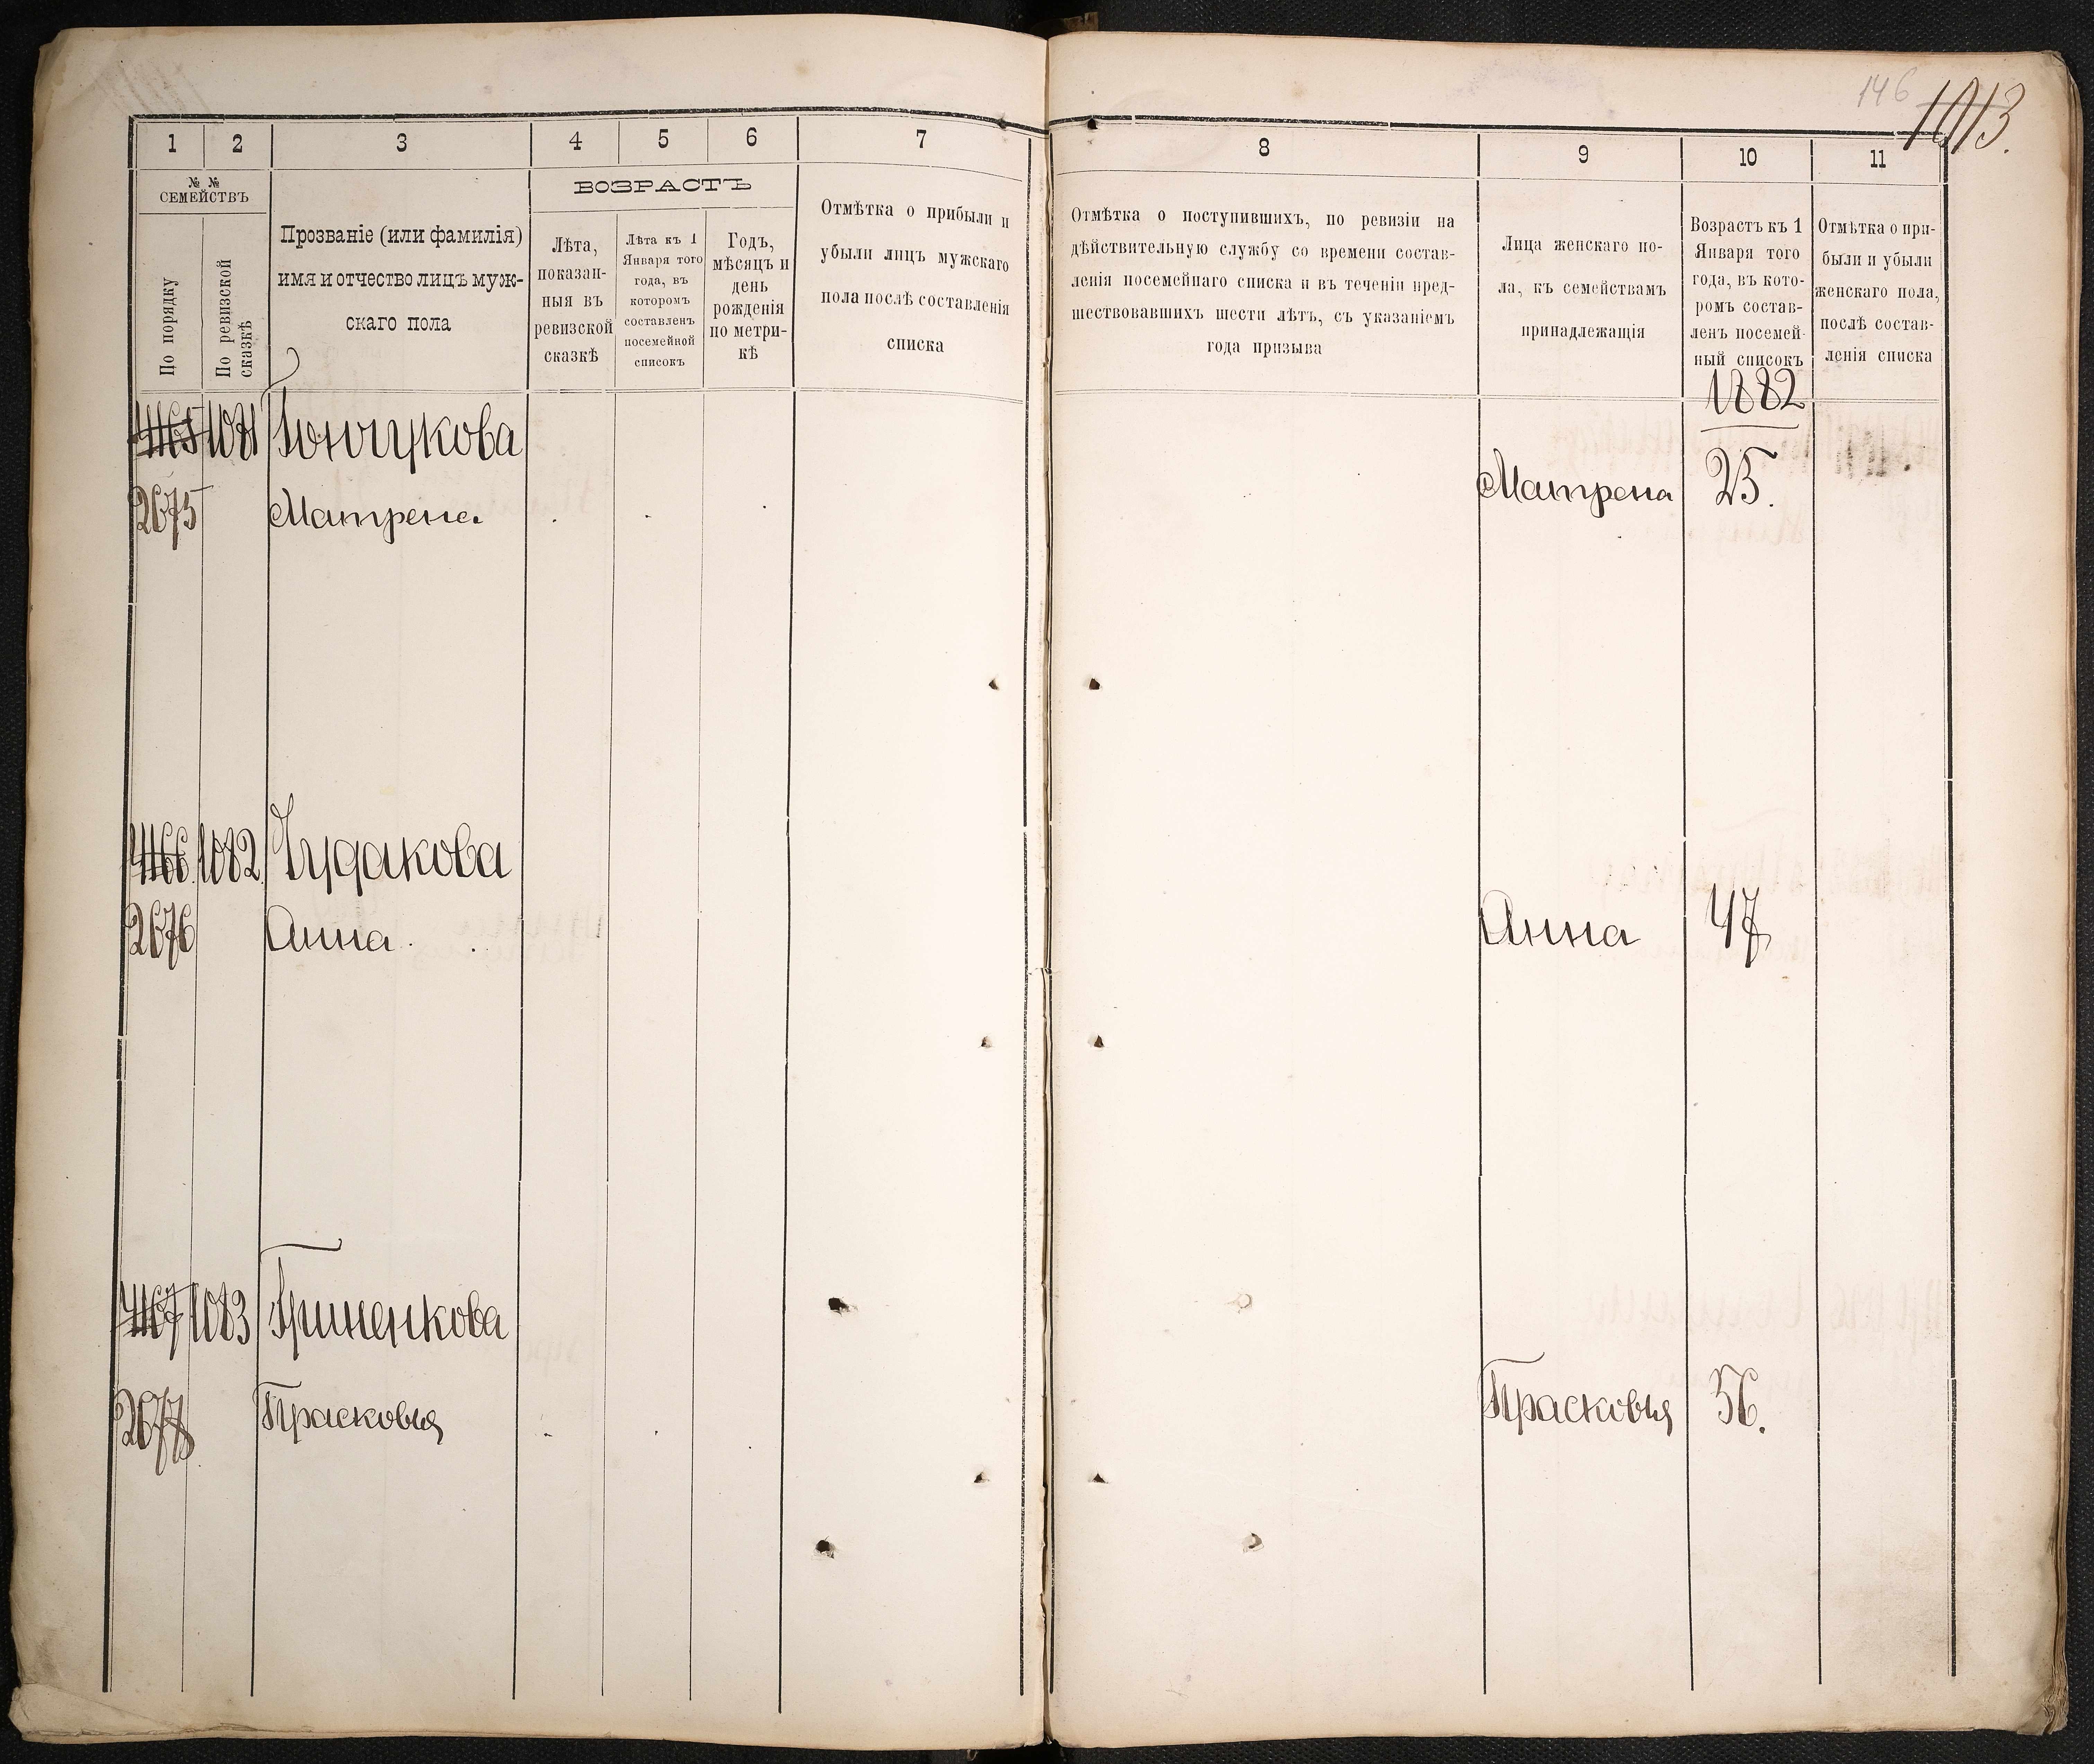 146
1013.
1 2 3 4 5 6 7
№ №
СЕМЕЙСТВЪ
По порядку
По ревизской
сказкѣ
Прозваніе (или фамилія)
имя и отчество лицъ муж-
скаго пола
ВОЗРАСТЪ
Лѣта,
показан-
ныя въ
ревизской
сказкѣ
Лѣта къ 1
Января того
года, въ
которомъ
составленъ
посемейной
списокъ
Годъ,
мѣсяцъ и
день
рожденія
по метри-
кѣ
Отмѣтка о прибыли и
убыли лицъ мужскаго
пола послѣ составленія
списка
8 9 10 11
Отмѣтка о поступившихъ, по ревизіи на
дѣйствительную службу со времени состав-
ленія посемейнаго списка и въ теченіи пред-
шествовавшихъ шести лѣтъ, съ указаніемъ
года призыва
Лица женскаго по-
ла, къ семействамъ
принадлежащія
Возрастъ къ 1
Января того
года, въ кото-
ромъ состав-
ленъ посемей-
ный списокъ
Отмѣтка о при-
были и убыли
женскаго пола,
послѣ состав-
ленія списка
1882
4165 1081
2675 Матрена Матрена 25.
4166 1082 Чудакова
2676 Анна Анна 47
4167 1083 Гриненкова
2677 Прасковья Прасковья 56.